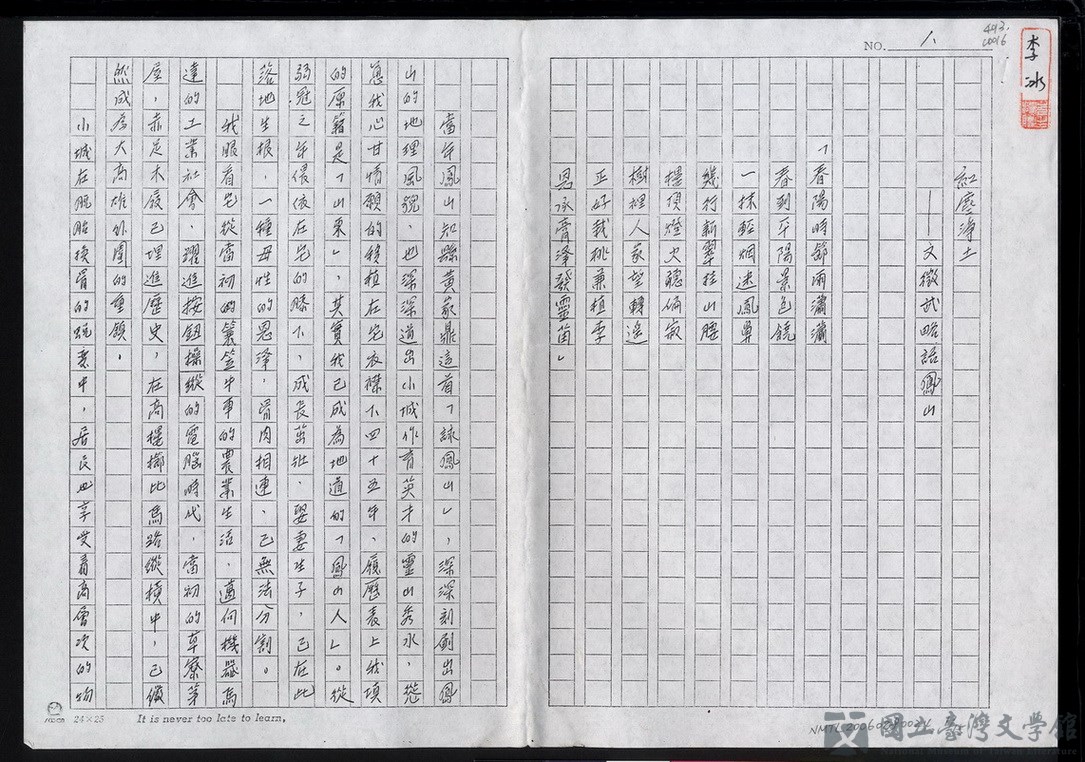 NO. 1
493.
0016
李冰
紅塵淨土
——文徵武略話鳳山
「春陽時節雨瀟瀟
春到平陽景色饒
一抹輕烟迷鳳鼻
幾行新翠挂山腰
堤頂燈火聽偏寂
樹裡人家望轉遙
正好栽桃兼植李
恩承膏澤發靈苗」
當年鳳山知縣黃家鼎這首「詠鳳山」,深深刻劃出鳳
山的地理風貌,也深深道出小城作育英才的靈山秀水,從
我心甘情願的移植在它衣襟下四十五年,履歷表上我填
的原籍是「山東」,其實我已成為地道的「鳳山人」。從
弱冠之年偎依在它的膝下,成長茁壯,娶妻生子,已在此
落地生根,一種母性的恩澤,骨肉相連,已無法分割。
我眼看它從當初的簑笠牛車的農業生活,邁向機器馬
達的工業社會,躍進按鈕操縱的電腦時代,當初的草寮茅
屋,赤足木屐已埋進歷史,在高樓櫛比馬路縱橫中,已儼
然成為大高雄外圍的重鎮。
小城在脫胎換骨的蛻變中,居民也享受着高層次的物
24×25
It is never too late to learn,
國立臺灣文學館
National Museum of Taiwan Literature